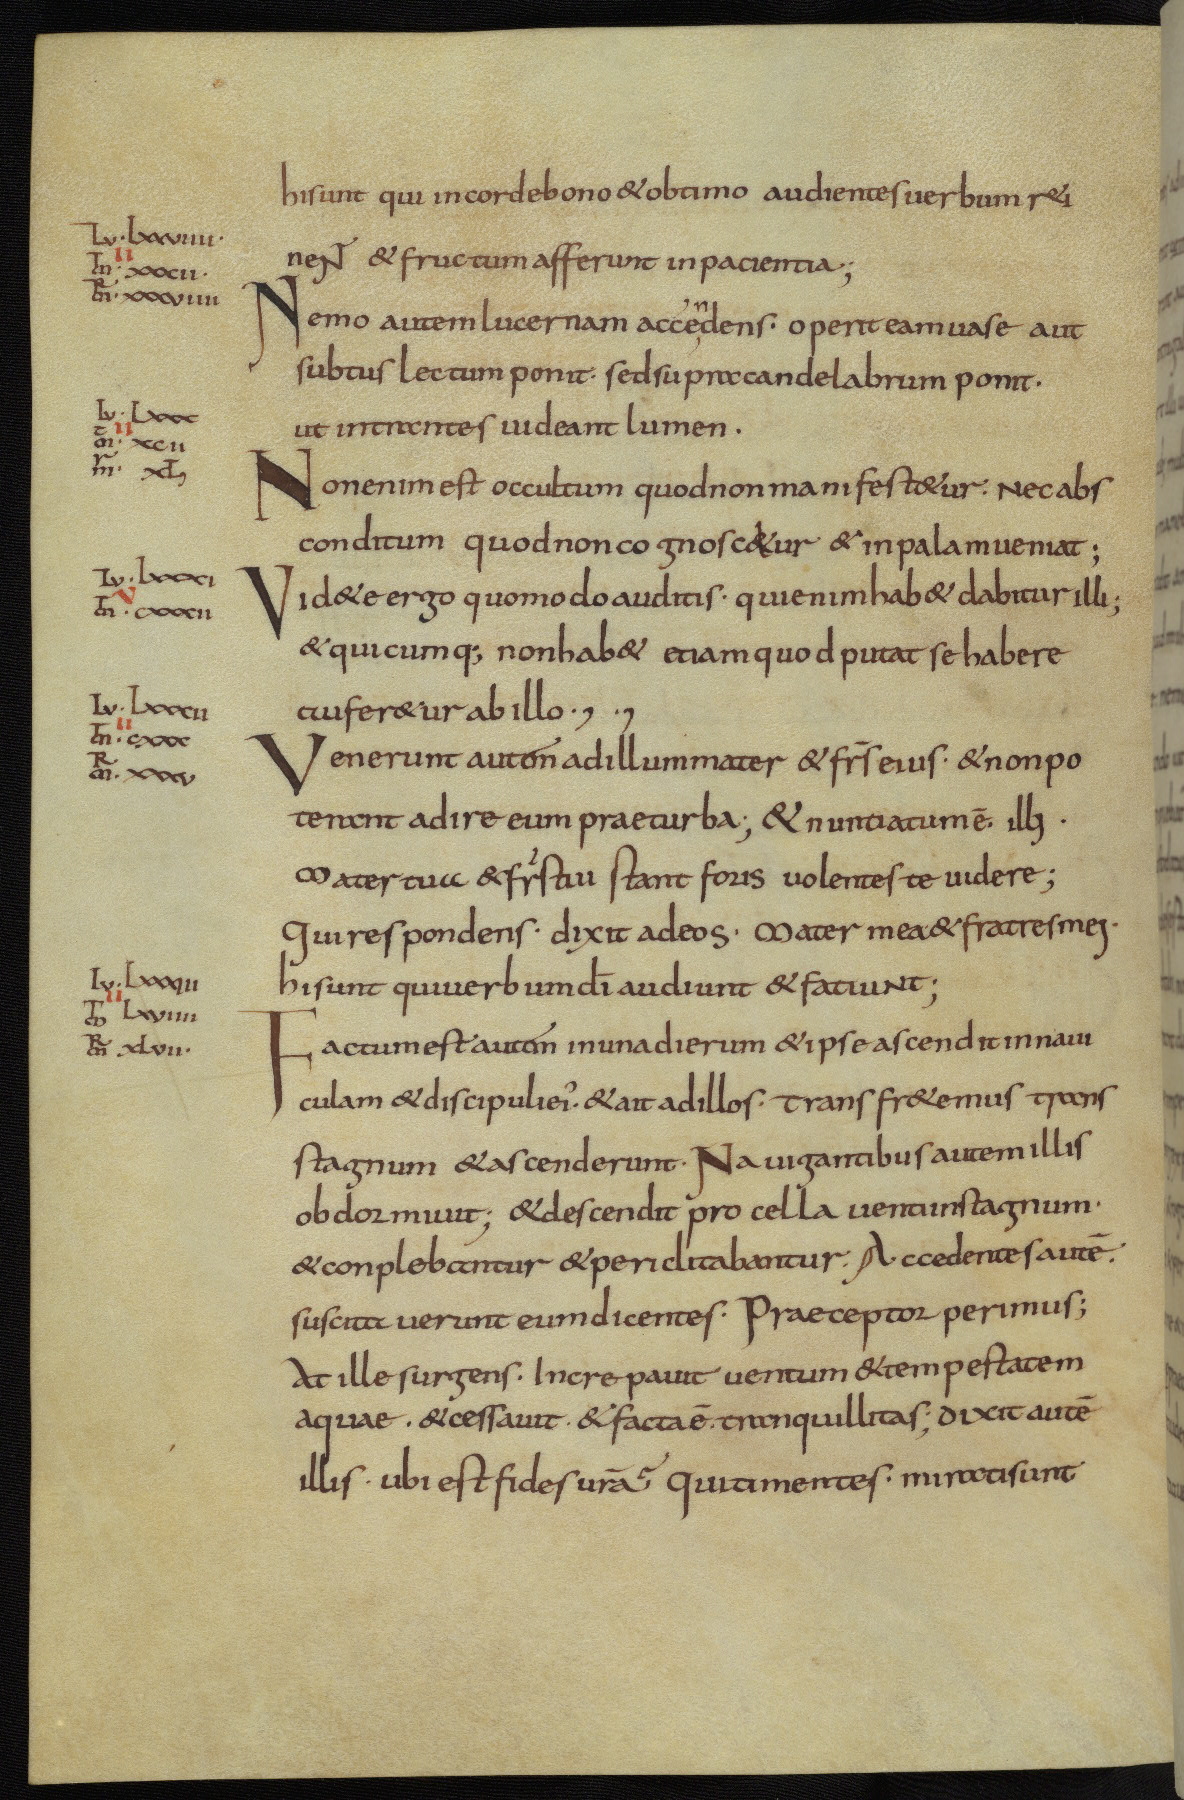 hisunt qui incordebono &obtimo audientesuerbumr&i
Lv·Lxxviiii·
neNt &fructumafferunt inpacientia;
II
m· xxxcii·
R
m· xxxviiii
Nemo autemlucernam accendens· operiteamuase aut
subtus lectumponit· sedsupracandelabrum ponit·
Lv·Lxxx
ut intrantes uideant lumen·
II
m· xcii
m· xL
Nonenimest occultum quodnonmanifest&ur· Necabs
conditum quodnoncognosc&ur &inpalamueniat;
Lv·Lxxxi
V
m· cxxxii
Uid&eergo quomodoauditis· quienimhab& dabiturilli;
&quicumq; nonhab& etiamquodputat sehabere
Lv·Lxxxii
auferȩ&ur abillo·, ·,
II
m· cxxx
R
m· xxxv
Uenerunt autem adillummater &fr̄s eius· &nonpo
terant adire eum praeturba; &nuntiatumē· illi·
Mater tua &fr̄stui stant foris uolentes te uidere;
Quirespondens· dixit adeos· Mater mea&fratresmei·
Lv·Lxxxiii
hisunt quiuerbumdī audiunt &fatiuNt;
II
m Lxviiii
R
m xLvii·
Factumest autem inunadierum &ipseascenditinnaui
culam &discipuliei'· &ait adillos· Transfr&emus trans
stagnum &ascenderunt· Nauigantibusautemillis
obdormiuit; &descendit procella uentiinstagnum·
&conplebantur &periclitabantur· Accedentesautē·
suscitauerunt eumdicentes· Praeceptor perimus;
At ille surgens· Increpauit uentum &tempestatem
aquae· &cessauit· &factaē· tranquillitas; dixit autē
illis· ubi est fides urā Quitimentes· miratisunt